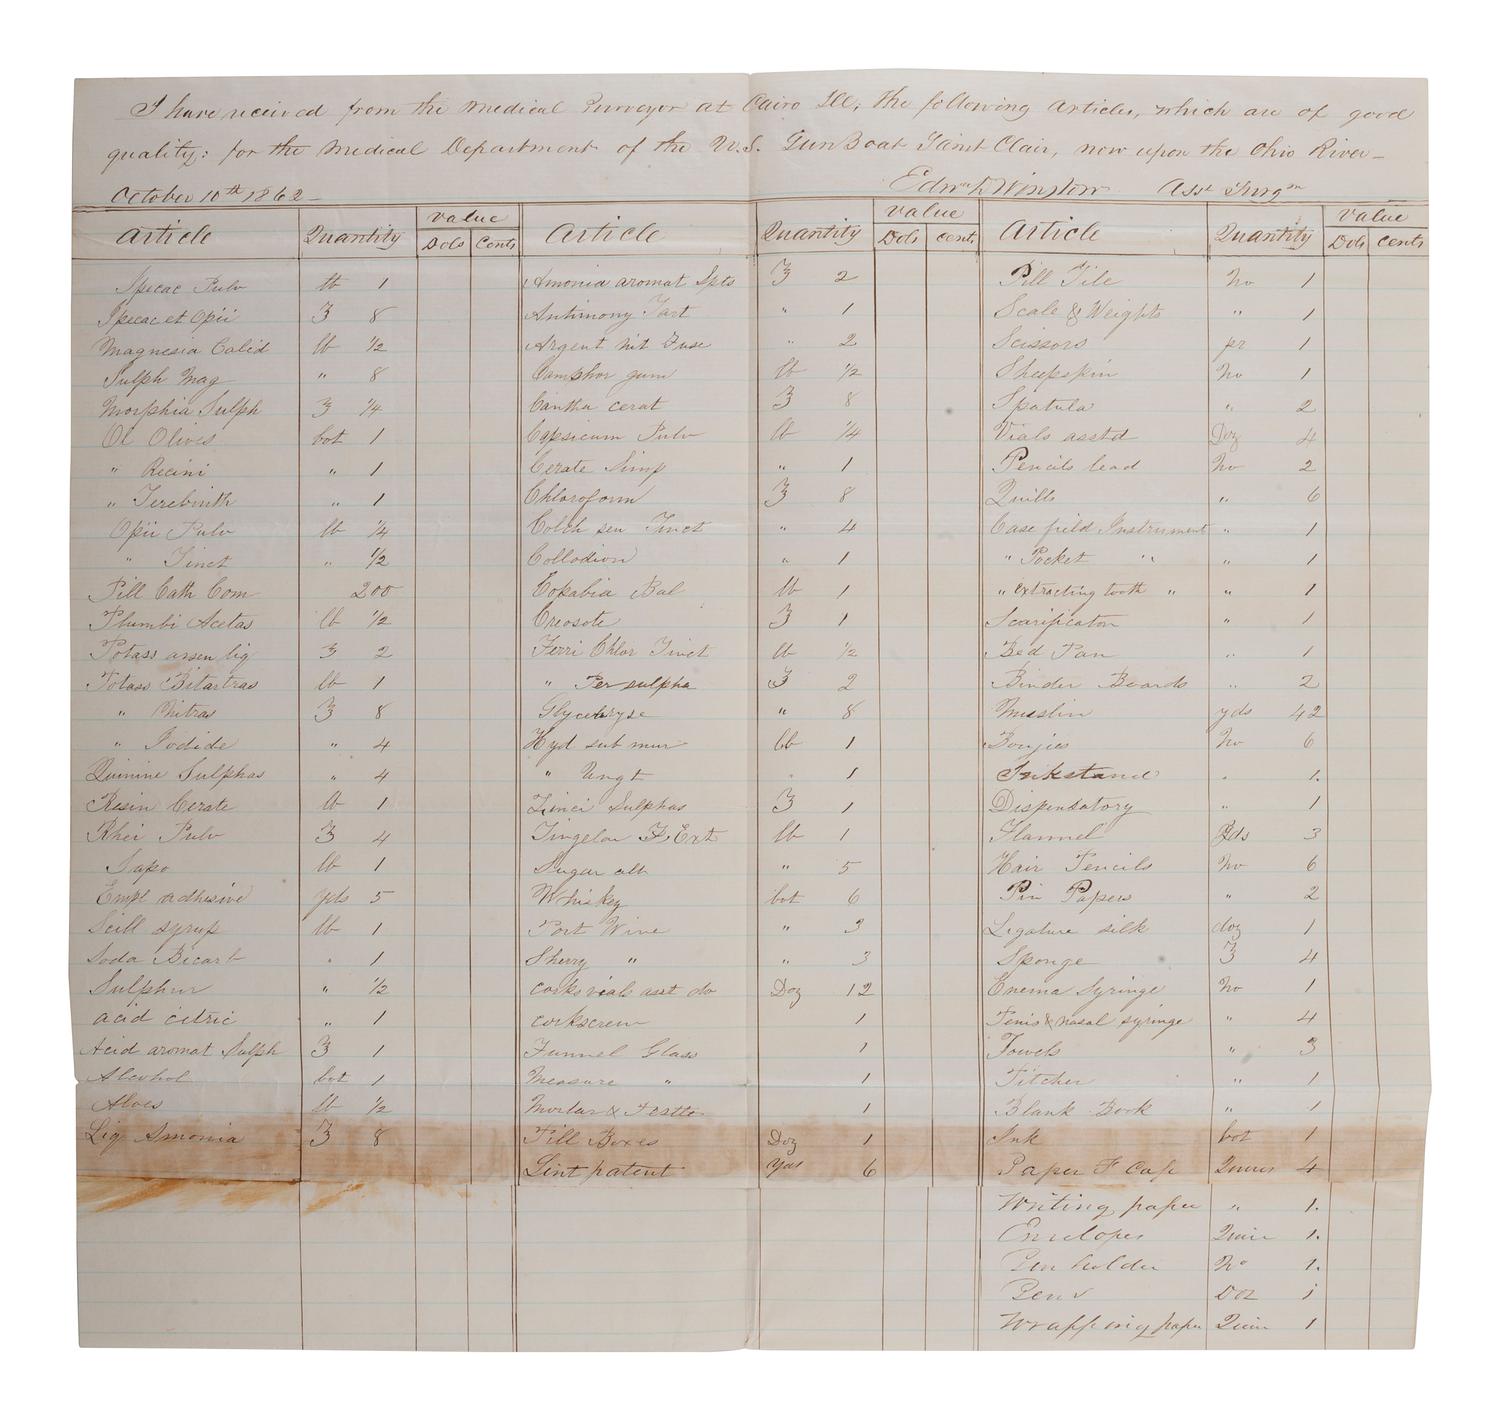 I have received from the Medical Purveyor at Cairo Ill, the following Articles, which are of good
quality: for the Medical Department of the U.S. GunBoat Saint Clair, now upon the Ohio River—
October 10th 1862— Edwd Winslow Asst Surgn
Article Quantity Value Dols Cents Article Quantity Value Dols Cents Article Quantity Value Dols Cents
Ipecac Pulv lb 1 Amonia aromat Spts ℥ 2 Pill Tile No 1
Ipecac et Opii ℥ 8 Antimony Tart " 1 Scale & Weights " 1
Magnesia Calid lb 1/2 Argent nit Fuse " 2 Scissors pr 1
Sulph Mag " 8 Camphor gum lb 1/2 Sheepskin No 1
Morphia Sulph ℥ 1/4 Cantha cerat ℥ 8 Spatula " 2
Ol Olives bot 1 Capsicum Pulv lb 1/4 Vials asstd Doz 4
" Recini " 1 Cerate Simp " 1 Pencils lead No 2
" Terebinth " 1 Chloroform ℥ 8 Quills " 6
Opii Pulv lb 1/4 Colch sem Tinct " 4 Case field Instrument " 1
" Tinct " 1/2 Collodion " 1 " Pocket " " 1
Pill Cath Com 200 Copabia Bal lb 1 " extracting tooth " " 1
Plumbi Acetas lb 1/2 Creosote ℥ 1 Scarificator " 1
Potass arsen liq ℥ 2 Ferri Chlor Tinct lb 1/2 Bed Pan " 1
Potass Bitartras lb 1 " Per sulpha ℥ 2 Binder Boards " 2
" Nitras ℥ 8 " 8 Muslin yds 42
" Iodide " 4 Hyd sub mur lb 1 Boujies No 6
Quinine Sulphas " 4 " Ungt " 1 Inkstand " 1.
Resin Cerate lb 1 Zinci Sulphas ℥ 1 Dispensatory " 1
Rhei Pulv ℥ 4 F. Ext lb 1 Flannel Yds 3
Sapo lb 1 Sugar alb " 5 Hair Pencils No 6
Empl adhesive yds 5 Whiskey bot 6 Pin Papers " 2
Scill syrup lb 1 Port Wine " 3 Ligature silk doz 1
Soda Bicarb " 1 Sherry " " 3 Sponge ℥ 4
Sulphur " 1/2 corks vials asst do Doz 12 Enema Syringe No 1
acid citric " 1 corkscrew 1 Penis & nasal syringe " 4
Acid aromat Sulph ℥ 1 Funnel Glass 1 Towels " 3
Alcohol bot 1 Measure " 1 Pitcher " 1
Aloes lb 1/2 Mortar & Pestle 1 Blank Book " 1
Liq Amonia ℥ 8 Pill Boxes Doz 1 Ink bot 1
Lint patent Yds 6 Paper F Cap Quires 4
Writing paper " 1.
Envelopes Quire 1.
Pen holder No 1.
Pens Doz 1
Wrapping paper Quire 1